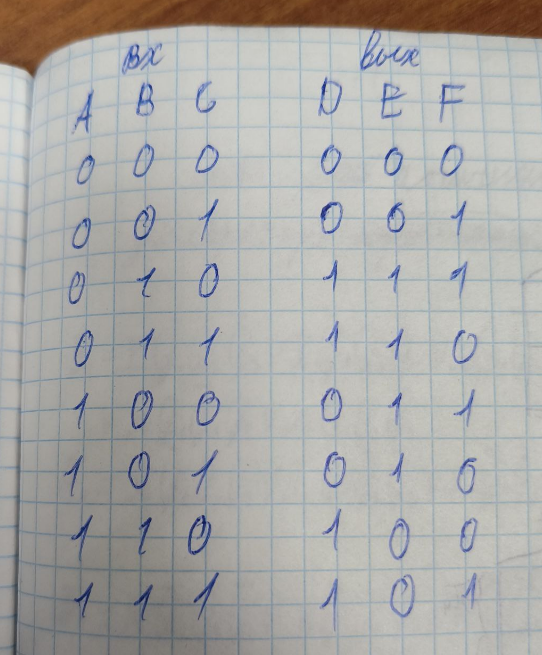 вх вых
A B C D E F
0 0 0 0 0 0
0 0 1 0 0 1
0 1 0 1 1 1
0 1 1 1 1 0
1 0 0 0 1 1
1 0 1 0 1 0
1 1 0 1 0 0
1 1 1 1 0 1